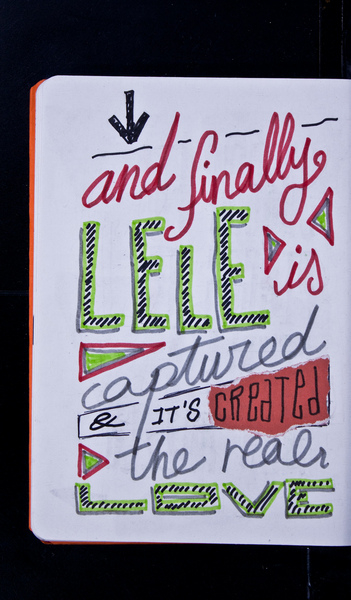 and finally
LELE is
captured
& IT'S CREATED
the realer
LOVE